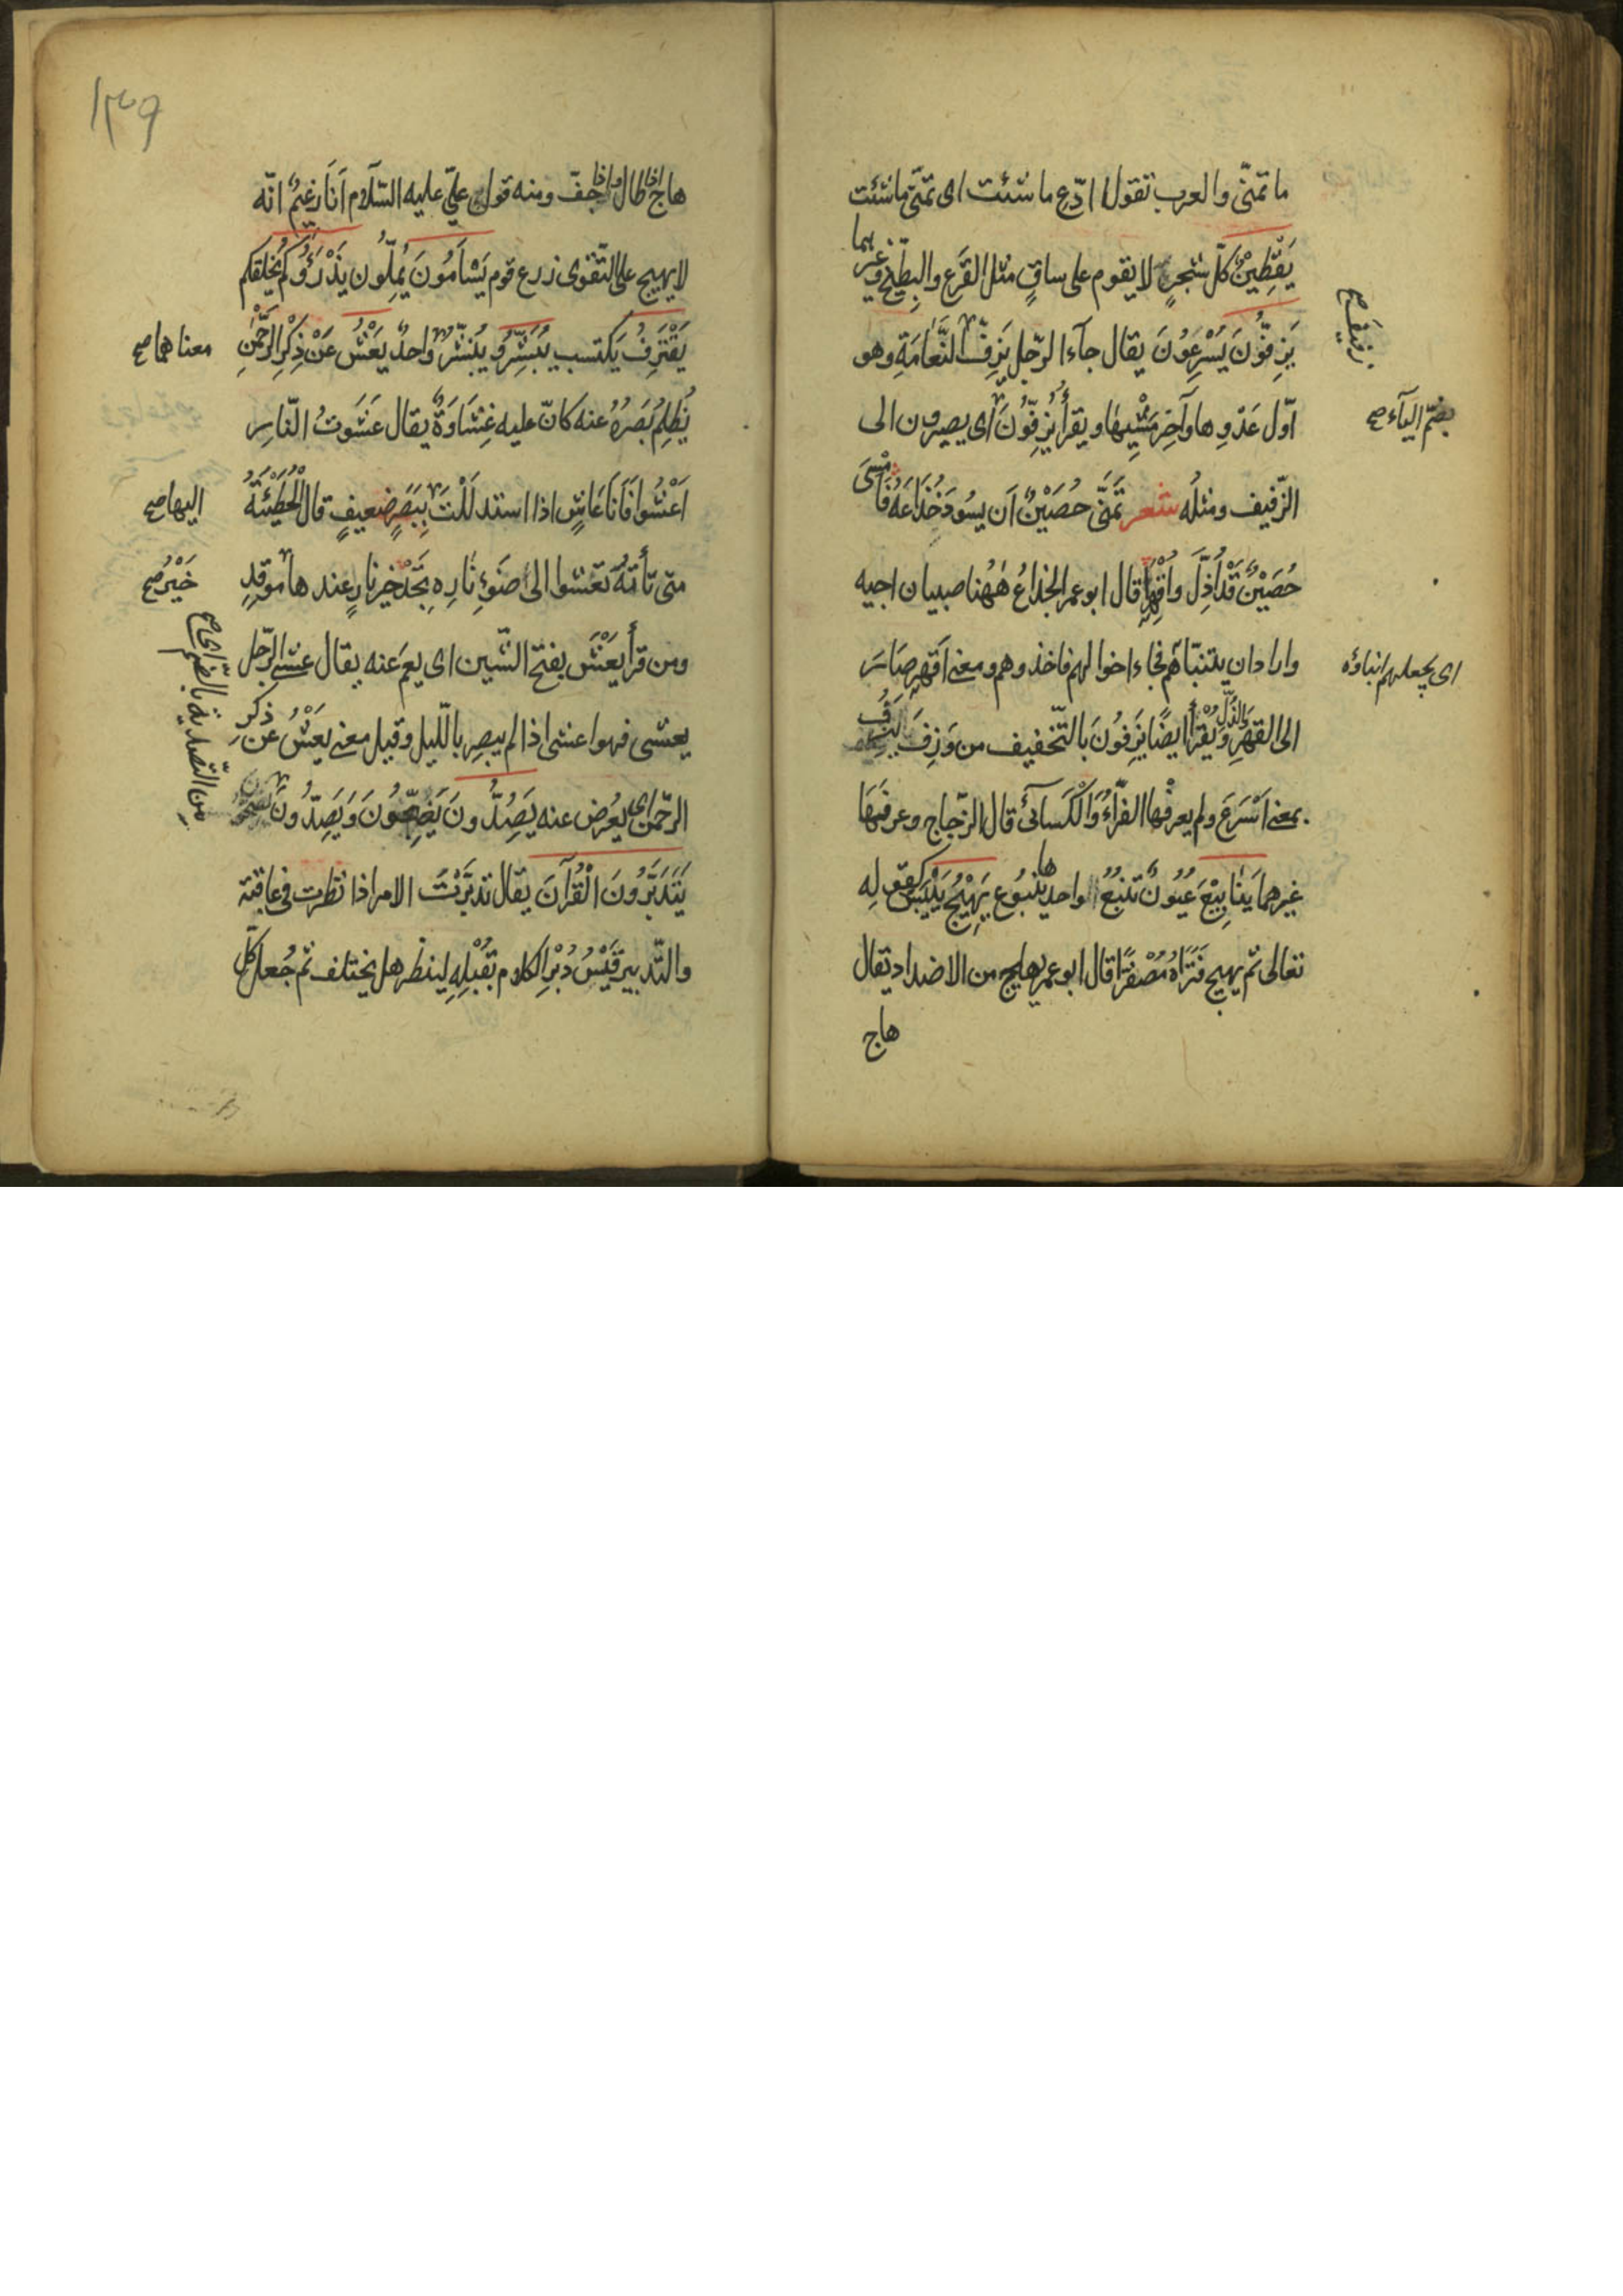 ما تمنّى والعرب تقول ادّع ما شئت اى تمنّ ما شئت
يَقْطِينٌ كلّ شجرٍ لا يقوم على ساقٍ مثل القَرَعِ والبِطّيخ وغيرهما
يَزِفُّونَ يُسْرِعُونَ يقال جآء الرّجل يَزِفُّ النَّعَامَةِ وهو
زفيف صح
اوّل عَدْوِها وآخِر مَشْيِهَا ويقرأ يُزِفُّونَ اى يصيرون الى
بضمّ اليآء صح
الزّفيف ومثلُه شعر تَمَنَّى حُصَيْنٌ اَن يسُودَ خُذَاعَهُ فَأَمْسَى
حُصَيْنٌ قَدْ اُذِلَّ وَاُقْهِرَا قال ابو عمر الخذاعُ هٰهُنا صبيان اخيه
وارادان يتنبّاهم فجاء اخوالهم فاخذوهم ومعنى اَقهِر صَاسَ
اى يجعلهم انباؤه
الى القهرِ والذّلّ ويُقرأ ايضًا يَزِفُونَ بالتّخفيف من وَزِفَ يَزِفُ
بمعنى اَسْرَعَ ولم يعرفْها الفرّآءُ وَالْكسآئىّ قال الزّجاج وعرفَهَا
غيرهما يَنَابِيْعَ عُيُونٌ تنبُعُ الواحد ها يَنبُوع يَهِيْجُ يَيْبَسُ كقولِه
تعالى ثم يهيج فَتَرَاهُ مُصْفَرًّا قال ابو عمر يهايج من الاضداد يقال
هاج
١٣٩
هاج اذا طال واذا جفّ ومنه قول علىّ عليه السّلام اَنَا زعيمٌ انّه
لا يهيج على التّقوى زرع قوم يَسْأَمُونَ يُملّون يَذْرَؤُكم يخلقكم
يَقْتَرِفْ يَكتسب يُبَشِّرُ ويُبَشّرُ واحدٌ يَعْشُ عَنْ ذِكْرِ الرَّحْمٰنِ
معناهما صح
يُظلِمْ بَصَرُهُ عنه كانّ عليه غِشَاوَةٌ يقال عَشَوتُ النّاسِ
اَعْشُوا فَاَنَا عَاشٍ اذا استدللْتَ بِبَصَرٍ ضعيفٍ قال الحُطَيْئَةُ
اليها صح
متى تأتهُ تعشوا الى ضَوْءِ نَارِهِ تَجَدْ خير نارٍ عندها موقدِ
خَيْرُ صح
ومن قرأ يَعْشَ بفتح الشّين اى يعمَ عنه يقال عشى الرّجل
يعشى فهو اعشى اذا لم يبصِر باللّيل وقيل معنى يَعْشُ عن ذكرِ
الرّحمٰن اى يُعرُض عنه يَصِدُّونَ يَضِجّونَ وَيَصُدّونَ
من التّصدية بالضّم
يَتَدَبَّرُونَ الْقُرْآنَ يقال تدبّرْتَ الامر اذا نظرت فى عاقبته
والتّدبير قَيْسُ دُبُرِ الكلام بقُبُلِهِ لينظر هل يختلف ثم جُعل كلّ